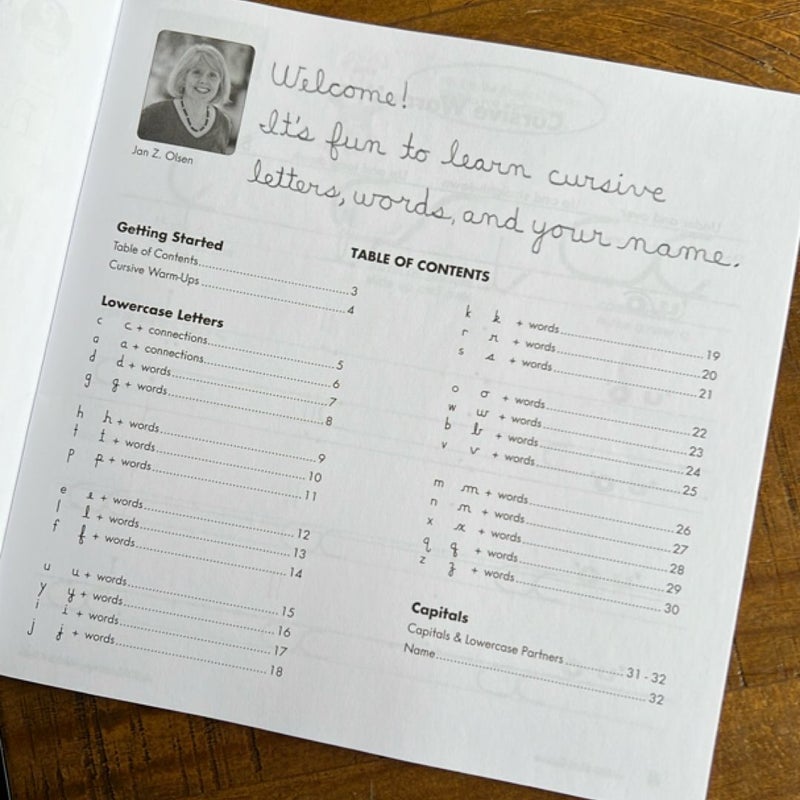 Welcome!
It's fun to learn cursive
letters, words, and your name.
Jan Z. Olsen
TABLE OF CONTENTS
Getting Started
Table of Contents 3
Cursive Warm-Ups 4
Lowercase Letters
c c + connections 5
a a + connections 6
d d + words 7
g g + words 8
h h + words 9
t t + words 10
p p + words 11
e e + words 12
l l + words 13
f f + words 14
u u + words 15
y y + words 16
i i + words 17
j j + words 18
k k + words 19
r r + words 20
s s + words 21
o o + words 22
w w + words 23
b b + words 24
v v + words 25
m m + words 26
n n + words 27
x x + words 28
q q + words 29
z z + words 30
Capitals
Capitals & Lowercase Partners 31 - 32
Name 32